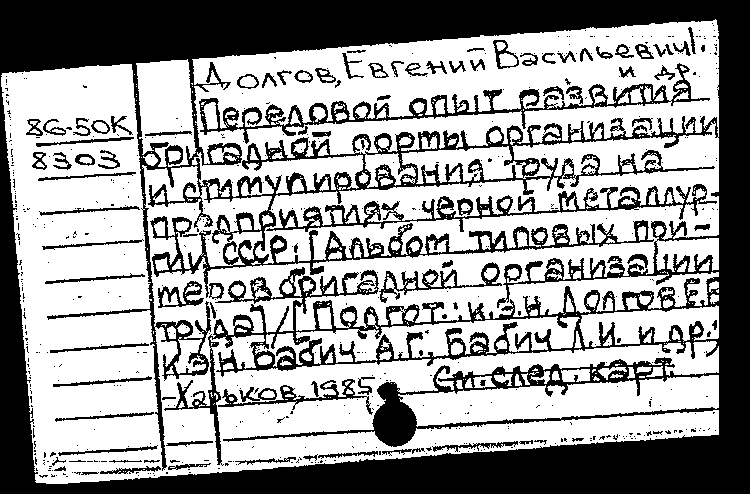 Долгов, Евгений Васильевич.
и др.
Передовой опыт развития
86-50К
бригадной формы организации
8303
и стимулирования труда на
предприятиях черной металлур-
гии СССР: [Альбом типовых при-
меров бригадной организации
труда] / [Подгот.: к.э.н. Долгов Е.В.
к.э.н. Бабич А.Г., Бабич Л.И. и др.;
Харьков, 1985
См. след. карт.